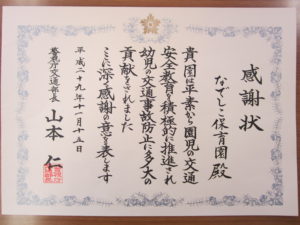 感謝状
なでしこ保育園 殿
貴園は平素から園児の交通
安全教育を積極的に推進され
幼児の交通事故防止に多大の
貢献をされました
ここに深く感謝の意を表します
平成二十九年十一月十五日
警視庁交通部長
山本 仁